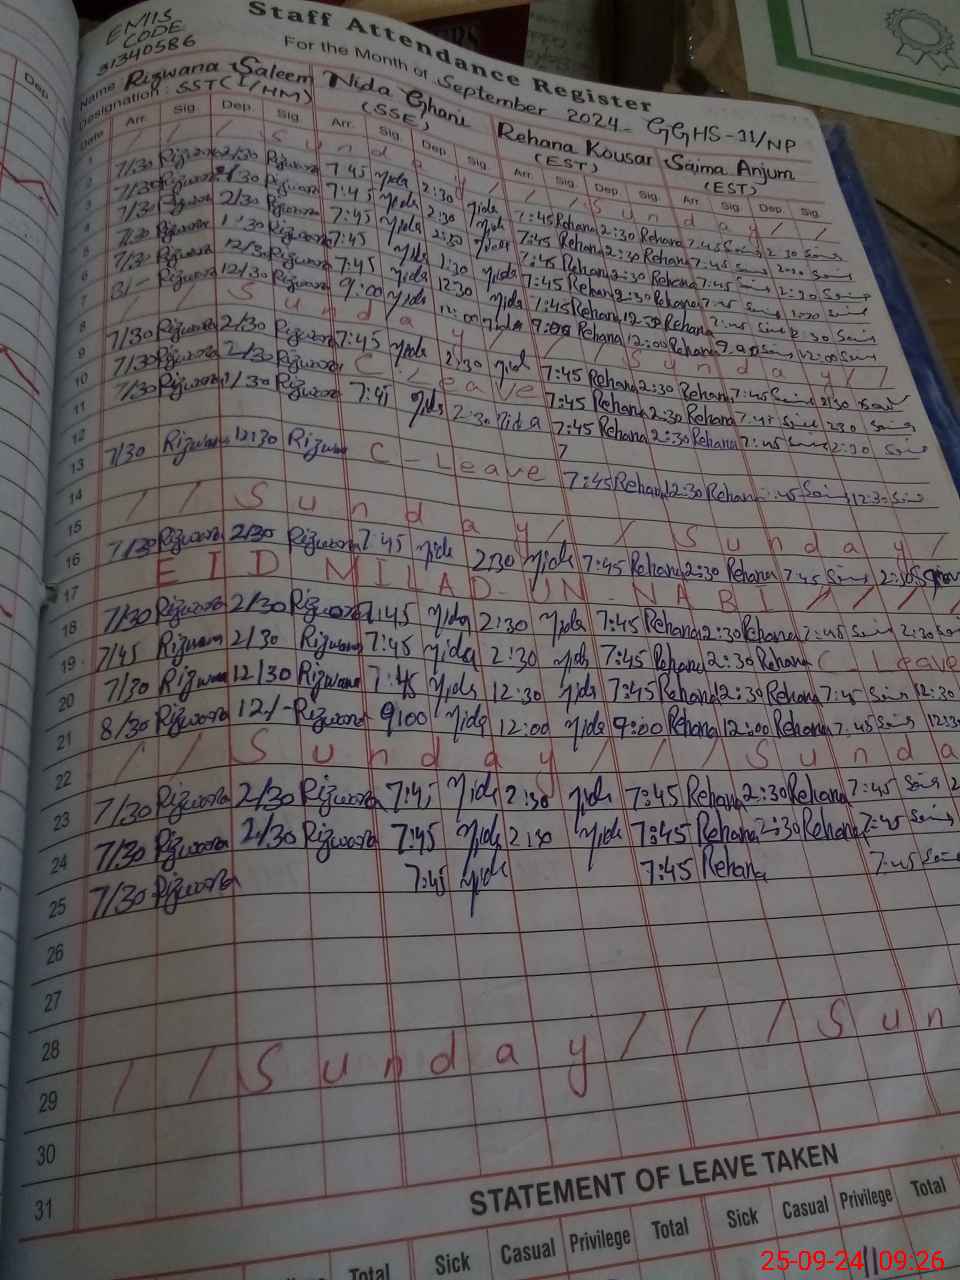 Staff Attendance Register
EMIS CODE 31340586
For the Month of September 2024 GGHS-31/NP
Name Rizwana Saleem Nida Ghani Rehana Kousar Saima Anjum
Designation: SST(I/HM) (SSE) (EST) (EST)
Date Arr. Sig. Dep. Sig. Arr. Sig. Dep. Sig. Arr. Sig. Dep. Sig. Arr. Sig. Dep. Sig.
1 / / Sunday / / / Sunday / /
2 7/30 Rizwana 2/30 Rizwana 7:45 Nida 2:30 Nida 7:45 Rehana 2:30 Rehana 7:45
3 7/30 Rizwana 2/30 Rizwana 7:45 Nida 2:30 Nida 7:45 Rehana 2:30 Rehana 7:45
4 7/30 Rizwana 2/30 Rizwana 7:45 Nida 2:30 Nida 7:45 Rehana 2:30 Rehana 7:45
5 7/30 Rizwana Rizwana 7:45 Nida Nida 7:45 Rehana 2:30 Rehana
6 7/30 Rizwana 12/30 Rizwana 7:45 Nida 12:30 Nida 7:45 Rehana 12:30 Rehana
7 8/- Rizwana 12/30 Rizwana 9:00 Nida Nida Rehana 12:00 Rehana 12:00
8 / / Sunday / / / Sunday / /
9 7/30 Rizwana 2/30 Rizwana 7:45 Nida 2:30 Nida 7:45 Rehana 2:30 Rehana 7:45 2:30
10 7/30 Rizwana 2/30 Rizwana C-Leave 7:45 Rehana 2:30 Rehana 7:45
11 7/30 Rizwana 2/30 Rizwana 7:45 Nida 2:30 Nida 7:45 Rehana 2:30 Rehana 7:45
12 7
13 7/30 Rizwana 12:30 Rizwana C-Leave 7:45 Rehana 12:30 Rehana 7:45 12:30
14
15 / / Sunday / / / Sunday /
16 7/30 Rizwana 2/30 Rizwana 7:45 Nida 2:30 Nida 7:45 Rehana 2:30 Rehana 7:45 2:30
17 EID MILAD-UN-NABI / / / /
18 7/30 Rizwana 2/30 Rizwana 7:45 Nida 2:30 Nida 7:45 Rehana 2:30 Rehana 7:45 2:30
19 7/45 Rizwana 2/30 Rizwana 7:45 Nida 2:30 Nida 7:45 Rehana 2:30 Rehana C-Leave
20 7/30 Rizwana 12/30 Rizwana 7:45 Nida 12:30 Nida 7:45 Rehana 12:30 Rehana 7:45 12:30
21 8/30 Rizwana 12/- Rizwana 9:00 Nida 12:00 Nida 9:00 Rehana 12:00 Rehana 7:45
22 / / Sunday / / / Sunda
23 7/30 Rizwana 2/30 Rizwana 7:45 Nida 2:30 Nida 7:45 Rehana 2:30 Rehana 7:45
24 7/30 Rizwana 2/30 Rizwana 7:45 Nida 2:30 Nida 7:45 Rehana 2:30 Rehana 7:45
25 7/30 Rizwana 7:45 Nida 7:45 Rehana 7:45
26
27
28
29 / / Sunday / / / Sun
30
31
STATEMENT OF LEAVE TAKEN
Total Sick Casual Privilege Total Sick Casual Privilege Total
25-09-24||09:26